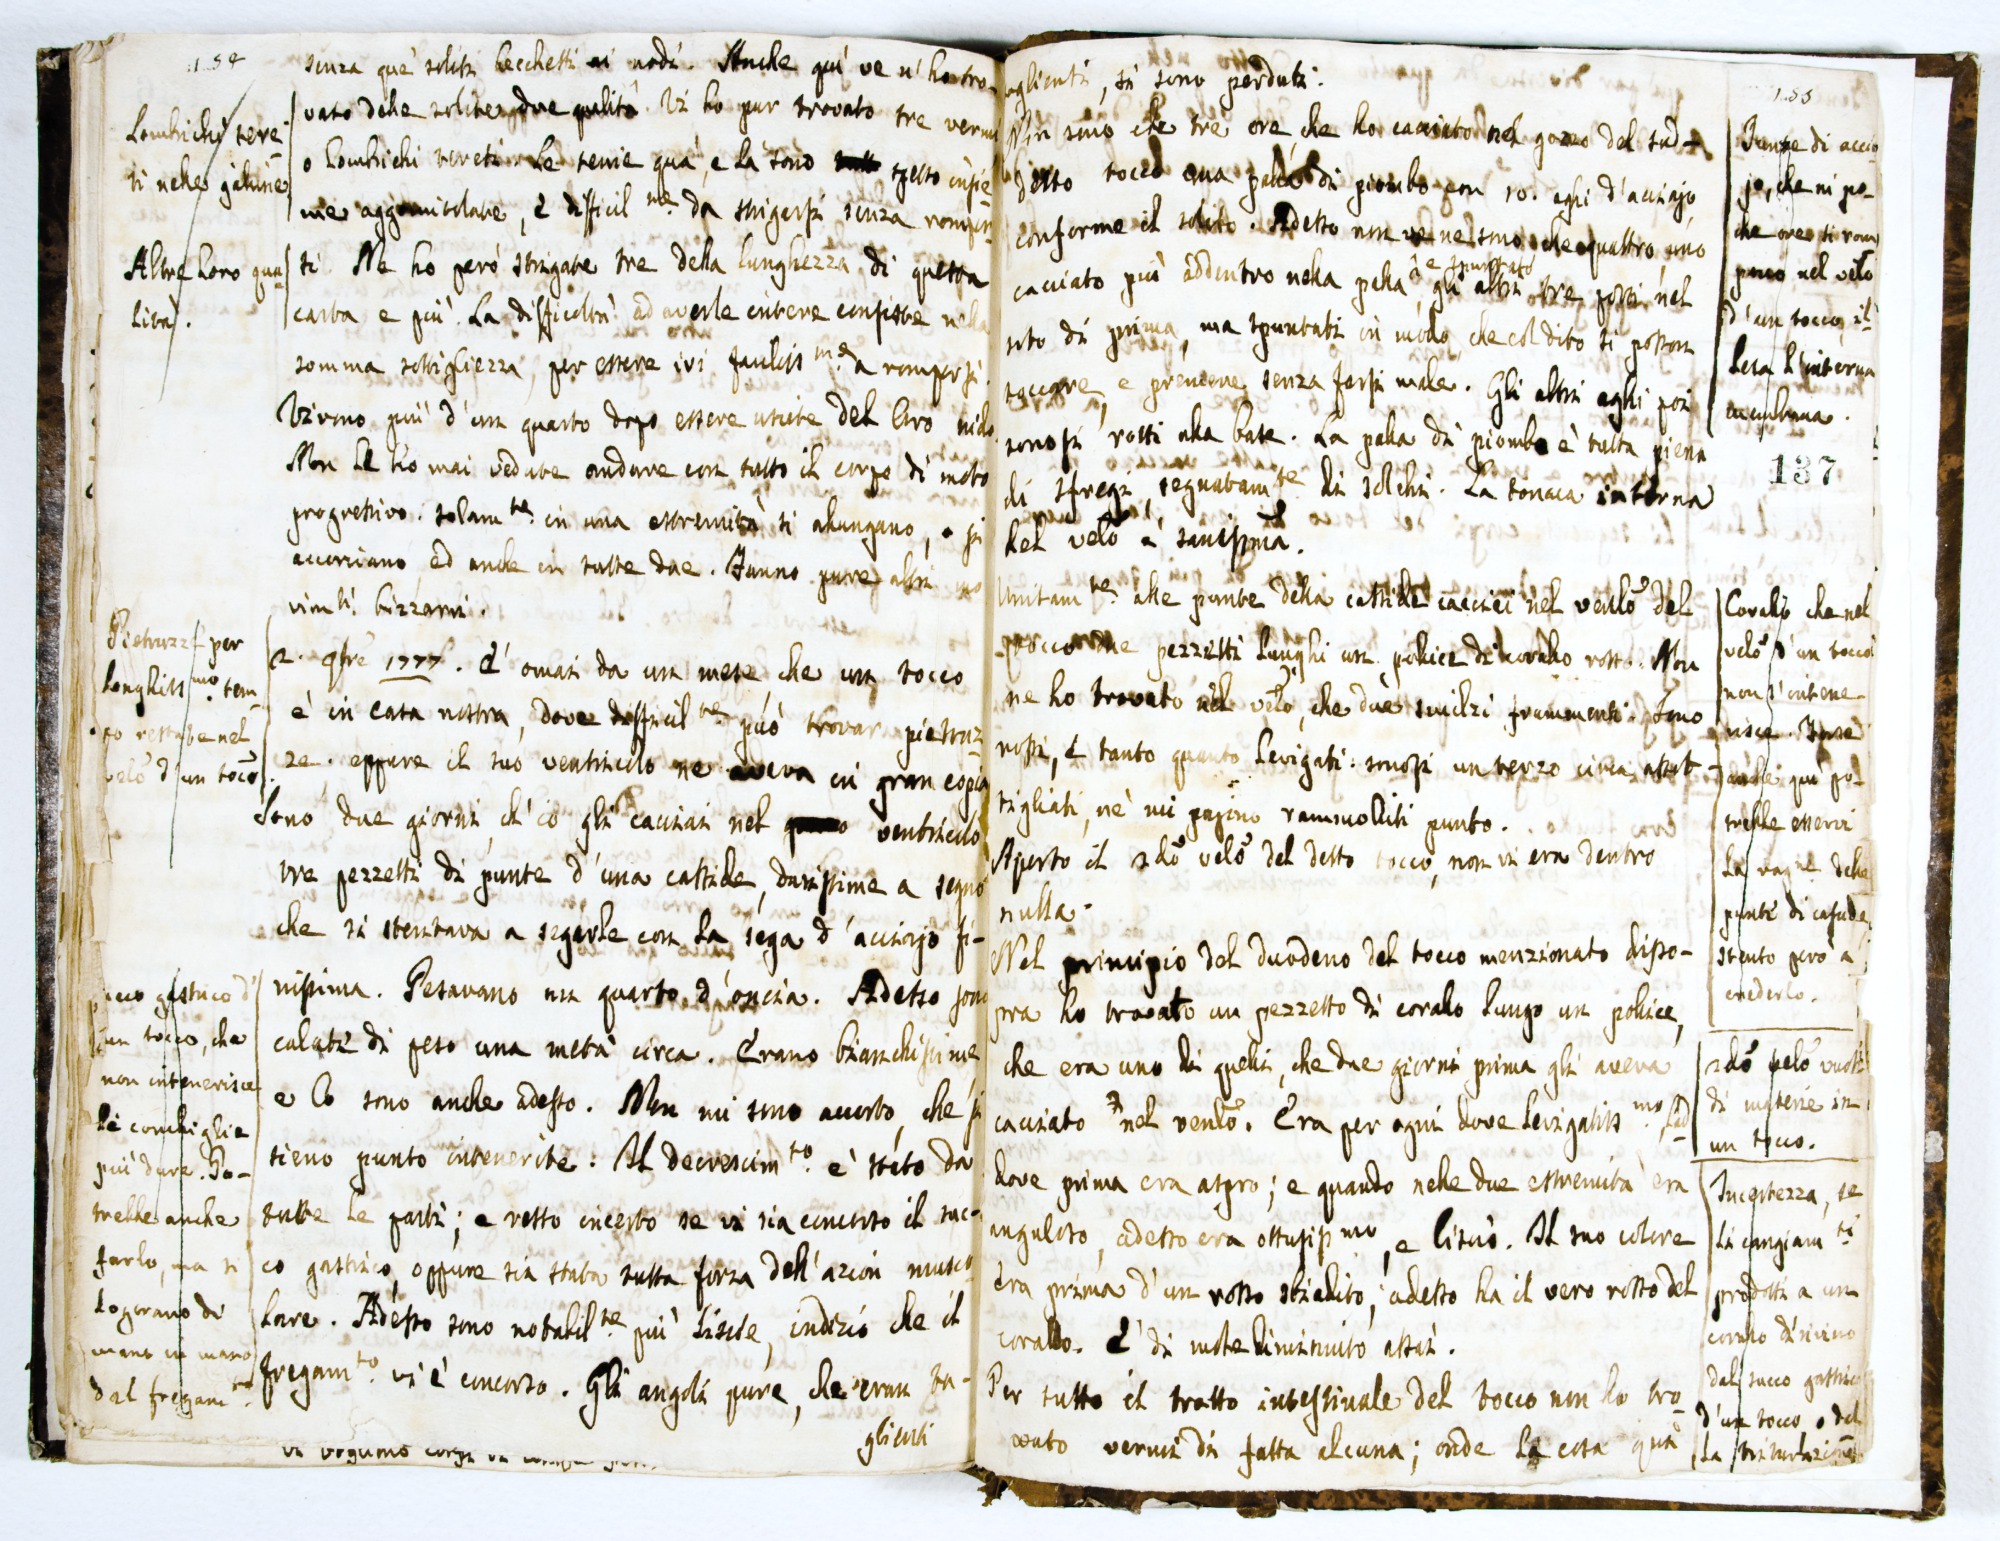 154
senza que' soliti becchetti ai nodi. Anche qui ve n' ho tro-
vato delle solite due qualità. Vi ho pur trovato tre vermi
o lombrichi tereti. Le tenie qua, e là sono spesso insie-
me aggomitolate, e difficil.me da strigarsi senza romper-
si. Ne ho però strigate tre della lunghezza di questa
carta e più. La difficoltà ad averle intere consiste nella
somma sottigliezza, per essere ivi faciliss.me a rompersi.
Vivono più d'un quarto dopo essere uscite del loro nido
Non le ho mai vedute andare con tutto il corpo di moto
progressivo. solam.te in una estremità si allungano, o si
accorciano, ed anche in tutte due. Fanno pure altri mo
vim.ti bizzarri.
Lombrichi tere-
ti nelle galline
Altre loro qua
lità.
2. 9bre 1777. E' omai da un mese che un tocco
è in casa nostra, dove difficil.te può trovar pietruz-
ze. eppure il suo ventricolo ne aveva in gran copia
Sono due giorni ch'io gli cacciai nel ventricolo
tre pezzetti di punte d'una casside, durissime a segno
che si stentava a segarle con la sega d'acciajo fi-
nissima. Pesavano un quarto d'oncia. Adesso sono
calate di peso una metà circa. Erano bianchissime
e lo sono anche adesso. Non mi sono accorto, che si
sieno punto intenerite: Il decrescim.to è stato da
tutte le parti; e resto incerto se vi sia concorso il suc-
co gastrico, oppure sia stata tutta forza dell'azion musco-
lare. Adesso sono notabil.te più liscie, indizio che il
fregam.to vi è concorso. Gli angoli pure, che eran ta-
glienti
Pietruzze per
longhiss.mo tem-
po restate nel
velo d'un tocco.
succo gastrico d'
un tocco, che
non intenerisce
le conchiglie
più dure. Po-
trebbe anche
farlo, ma si
logorano di
mano in mano
dal fregam.to
155
glienti, si sono perduti.
Non sono che tre ore, che ho cacciato nel gozzo del sud-
detto tocco una palla di piombo con 10. aghi d'acciajo
conforme il solito. Adesso non ve ne sono che quattro, uno
cacciato più addentro nella palla e spuntato, gli altri tre posti nel
sito di prima, ma spuntati in modo, che col dito si posson
toccare, e premere senza farsi male. Gli altri aghi poi
sonosi rotti alla base. La palla di piombo è tutta piena
di sfregi, segnatam.te di solchi. La tonaca interna
del velo è sanissima.
Unitam.te alle punte della casside cacciai nel venlo del
tocco due pezzetti lunghi un pollice di corallo rosso. Non
ne ho trovato nel velo, che due smilzi frammenti. Sono
rossi, e tanto quanto levigati: sonosi un terzo circa assot-
tigliati, nè mi pajono rammolliti punto.
Aperto il 2do velo del detto tocco, non vi era dentro
nulla.
Nel principio del duodeno del tocco menzionato disso-
pra ho trovato un pezzetto di corallo lungo un pollice,
che era uno di quelli, che due giorni prima gli aveva
cacciato nel venlo. Era per ogni dove levigatiss.mo, lad
dove prima era aspro; e quando nelle due estremità era
anguloso, adesso era ottusiss.mo, e liscio. Il suo colore
era prima d'un rosso sbiadito, adesso ha il vero rosso del
corallo. E' di mole diminuito assai.
Per tutto il tratto intestinale del tocco non ho tro-
vato vermi di fatta alcuna; onde la cosa qua
Punte di accia
jo, che in po-
che ore si rom
pono nel velo
d'un tocco, il-
lesa l'interna
membrana.
137
Corallo che nel
velo d'un tocco
non s'intene-
risce. Forse
anche qui po-
trebbe esservi
la rag.ne delle
punte di casside
stento però a
crederlo.
2do velo vuoto
di materie in
un tocco.
Incertezza, se
li cangiam.ti
prodotti a un
corallo dirivino
dal succo gastrico
d'un tocco o dal
la triturazione